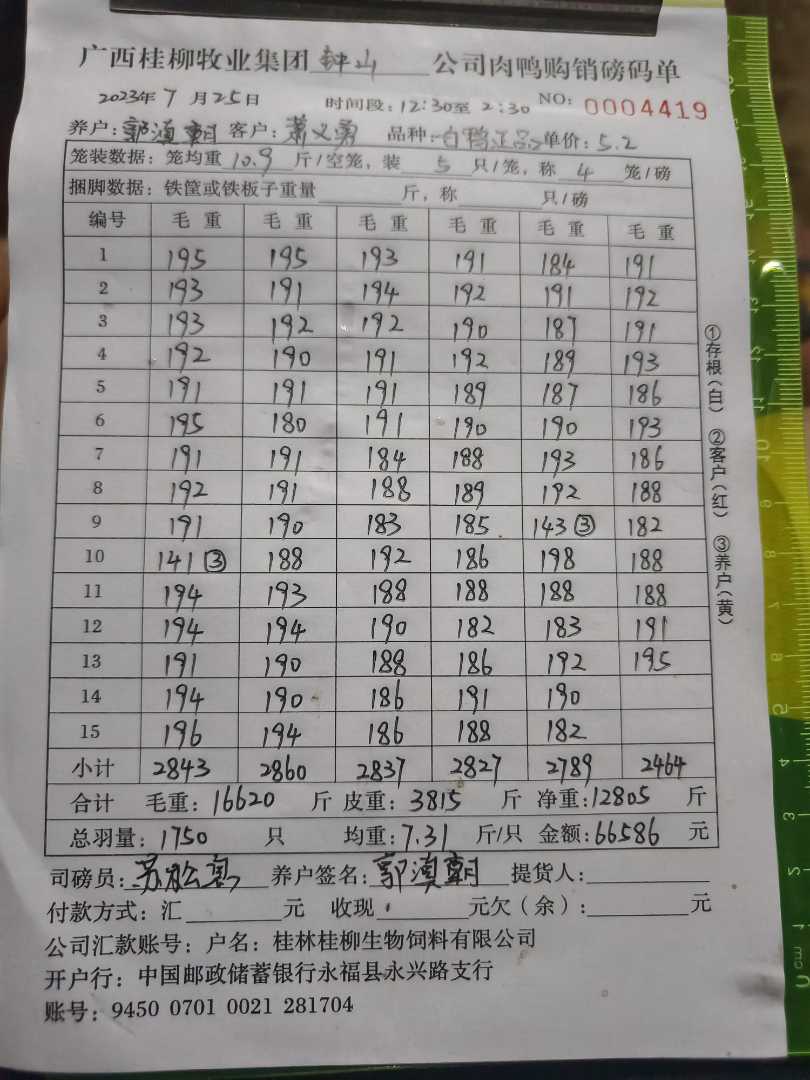 广西桂柳牧业集团 钟山 公司肉鸭购销磅码单
2023年 7 月 25 日 时间段: 12:30 至 2:30 NO: 0004419
养户: 郭滇朝 客户: 萧义勇 品种: 白鸭正品 单价: 5.2
笼装数据: 笼均重 10.9 斤/空笼, 装 5 只/笼, 称 4 笼/磅
捆脚数据: 铁筐或铁板子重量 斤, 称 只/磅
编号 毛重 毛重 毛重 毛重 毛重 毛重
1 195 195 193 191 184 191
2 193 191 194 192 191 192
3 193 192 192 190 187 191
4 192 190 191 192 189 193
5 191 191 191 189 187 186
6 195 180 191 190 190 193
7 191 191 184 188 193 186
8 192 191 188 189 192 188
9 191 190 183 185 143③ 182
10 141③ 188 192 186 198 188
11 194 193 188 188 188 188
12 194 194 190 182 183 191
13 191 190 188 186 192 195
14 194 190 186 191 190
15 196 194 186 188 182
小计 2843 2860 2837 2827 2789 2464
合计 毛重: 16620 斤 皮重: 3815 斤 净重: 12805 斤
总羽量: 1750 只 均重: 7.31 斤/只 金额: 66586 元
司磅员: 养户签名: 郭滇朝 提货人:
付款方式: 汇 元 收现 元欠(余): 元
公司汇款账号: 户名: 桂林桂柳生物饲料有限公司
开户行: 中国邮政储蓄银行永福县永兴路支行
账号: 9450 0701 0021 281704
①存根(白) ②客户(红) ③养户(黄)
0cm 1 2 3 4 5 6 7 8 9 10 11 12 13